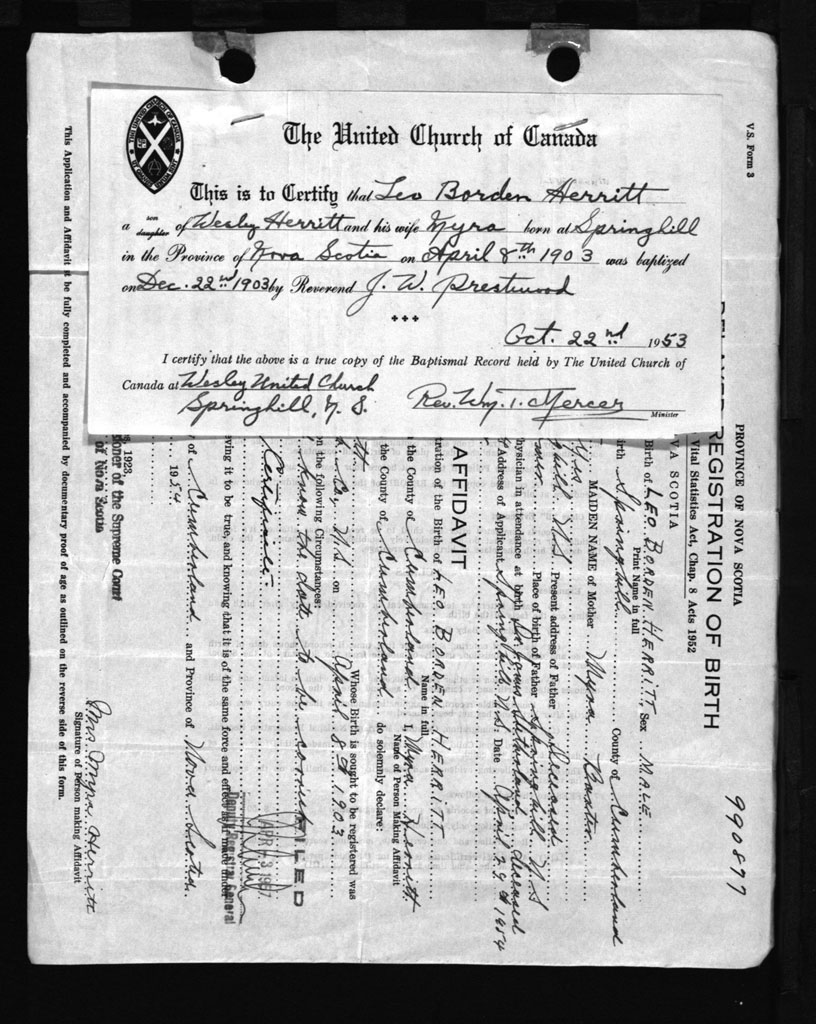 The United Church of Canada
This is to Certify that Leo Borden Herritt
a son daughter of Wesley Herritt and his wife Myra born at Springhill
in the Province of Nova Scotia on April 8th 1903 was baptized
on Dec. 22nd 1903 by Reverend J. W. Prestwood
Oct. 22nd 1953
I certify that the above is a true copy of the Baptismal Record held by The United Church of
Canada at Wesley United Church
Springhill, N. S. Rev. Wm. T. Mercer
Minister
V.S. Form 3
990877
PROVINCE OF NOVA SCOTIA
REGISTRATION OF BIRTH
Vital Statistics Act, Chap. 8 Acts 1952
VA SCOTIA
Birth of LEO BORDEN HERRITT Sex MALE
Print Name in full
irth Springhill County of Cumberland
MAIDEN NAME of Mother Myra Baxter
Yes
hill N.S Present address of Father deceased
Place of birth of Father Spring hill N S
hysician in attendance at birth Sutherland deceased
Address of Applicant Spring hill N.S. Date April 29th 1954
AFFIDAVIT
ration of the Birth of LEO BORDEN HERRITT
Name in full
the County of Cumberland I, Myra Herritt
Name of Person Making Affidavit
the County of Cumberland do solemnly declare:
Whose Birth is sought to be registered was
Co, N.S on April 8th 1903
on the following Circumstances:
I know the date to be correct
FILED
Certificate
APR 1957
Deputy Registrar General
ving it to be true, and knowing that it is of the same force and effect as if made under
of Cumberland and Province of Nova Scotia
1954
1923
oner of the Supreme Court
of Nova Scotia
Mrs. Myra Herritt
Signature of Person making Affidavit
This Application and Affidavit t be fully completed and accompanied by documentary proof of age as outlined on the reverse side of this form.